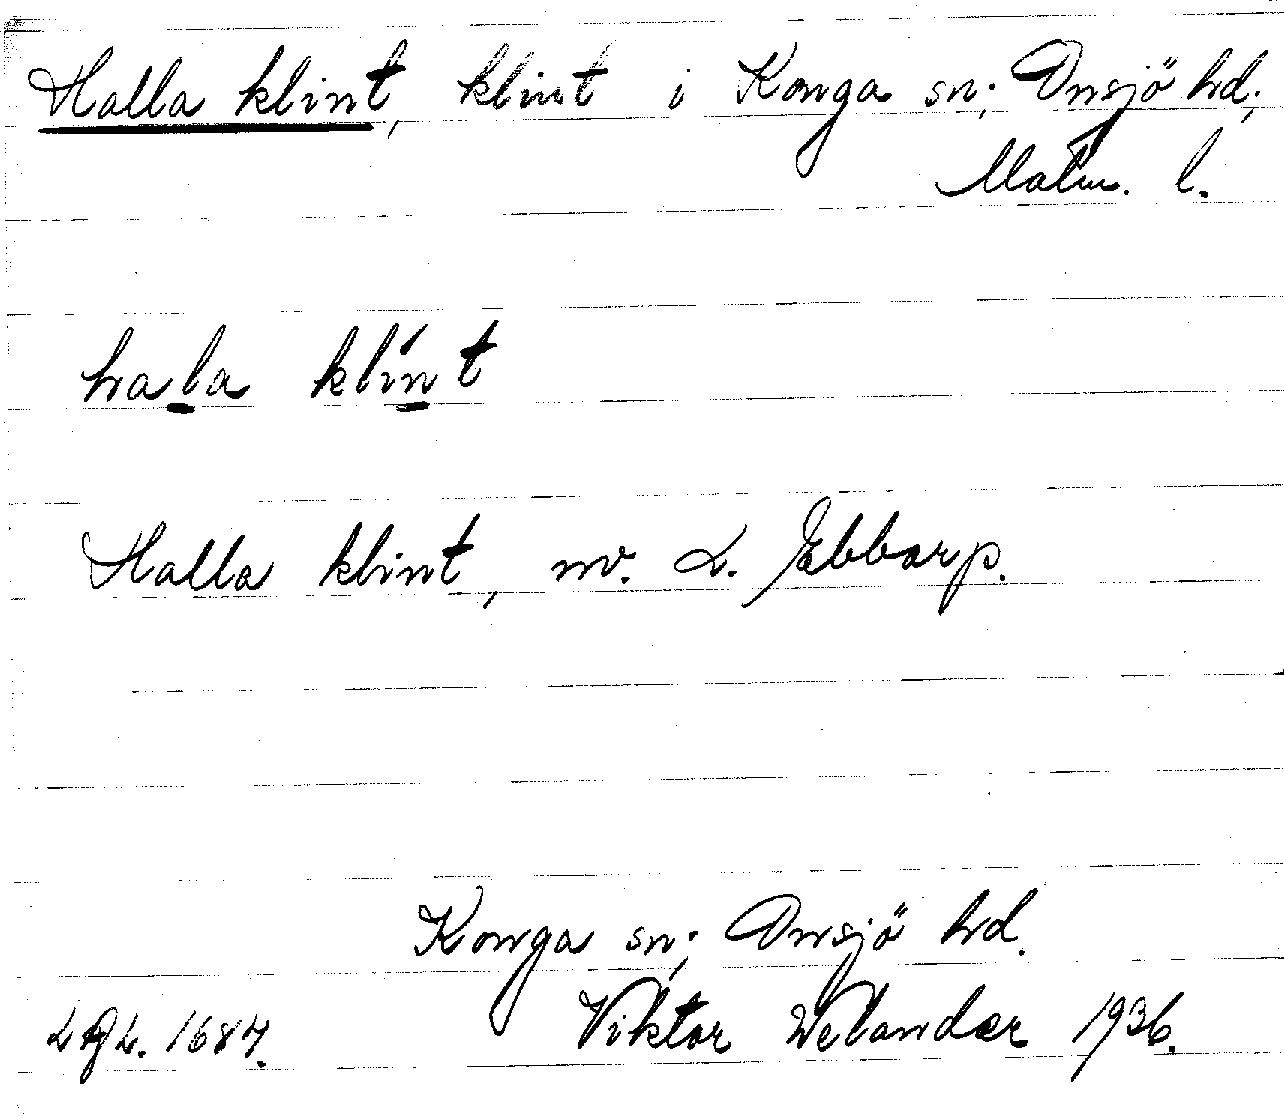 Halla klint, klint i Konga sn; Onsjö hd;
Malm. l.
hala klint
Halla klint, nv. L. Ebbarp.
Konga sn; Onsjö hd.
1684. Viktor Welander 1936.